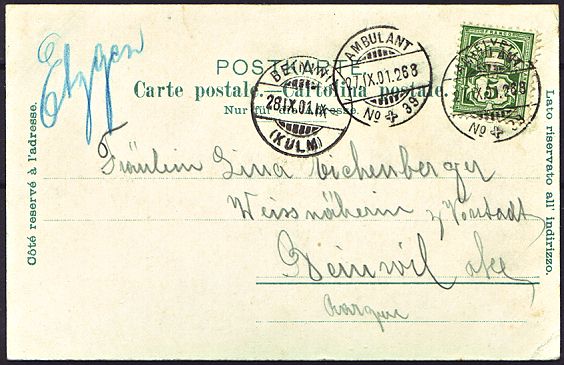 Etzgen
POSTKARTE
Carte postale.—Cartolina postale.
Nur für die Adresse.
Côté reservé à l'adresse.
Lato riservato all' indirizzo.
BEINWIL
28.IX.01.IX
(KULM)
AMBULANT
27.IX.01.268
No 39
HELVETIA
AMBULANT
IX.01.268
No 39
Fräulein Lina Eichenberger
Weissnäherin z/ Vorstadt
Beinwil a/See
Aargau